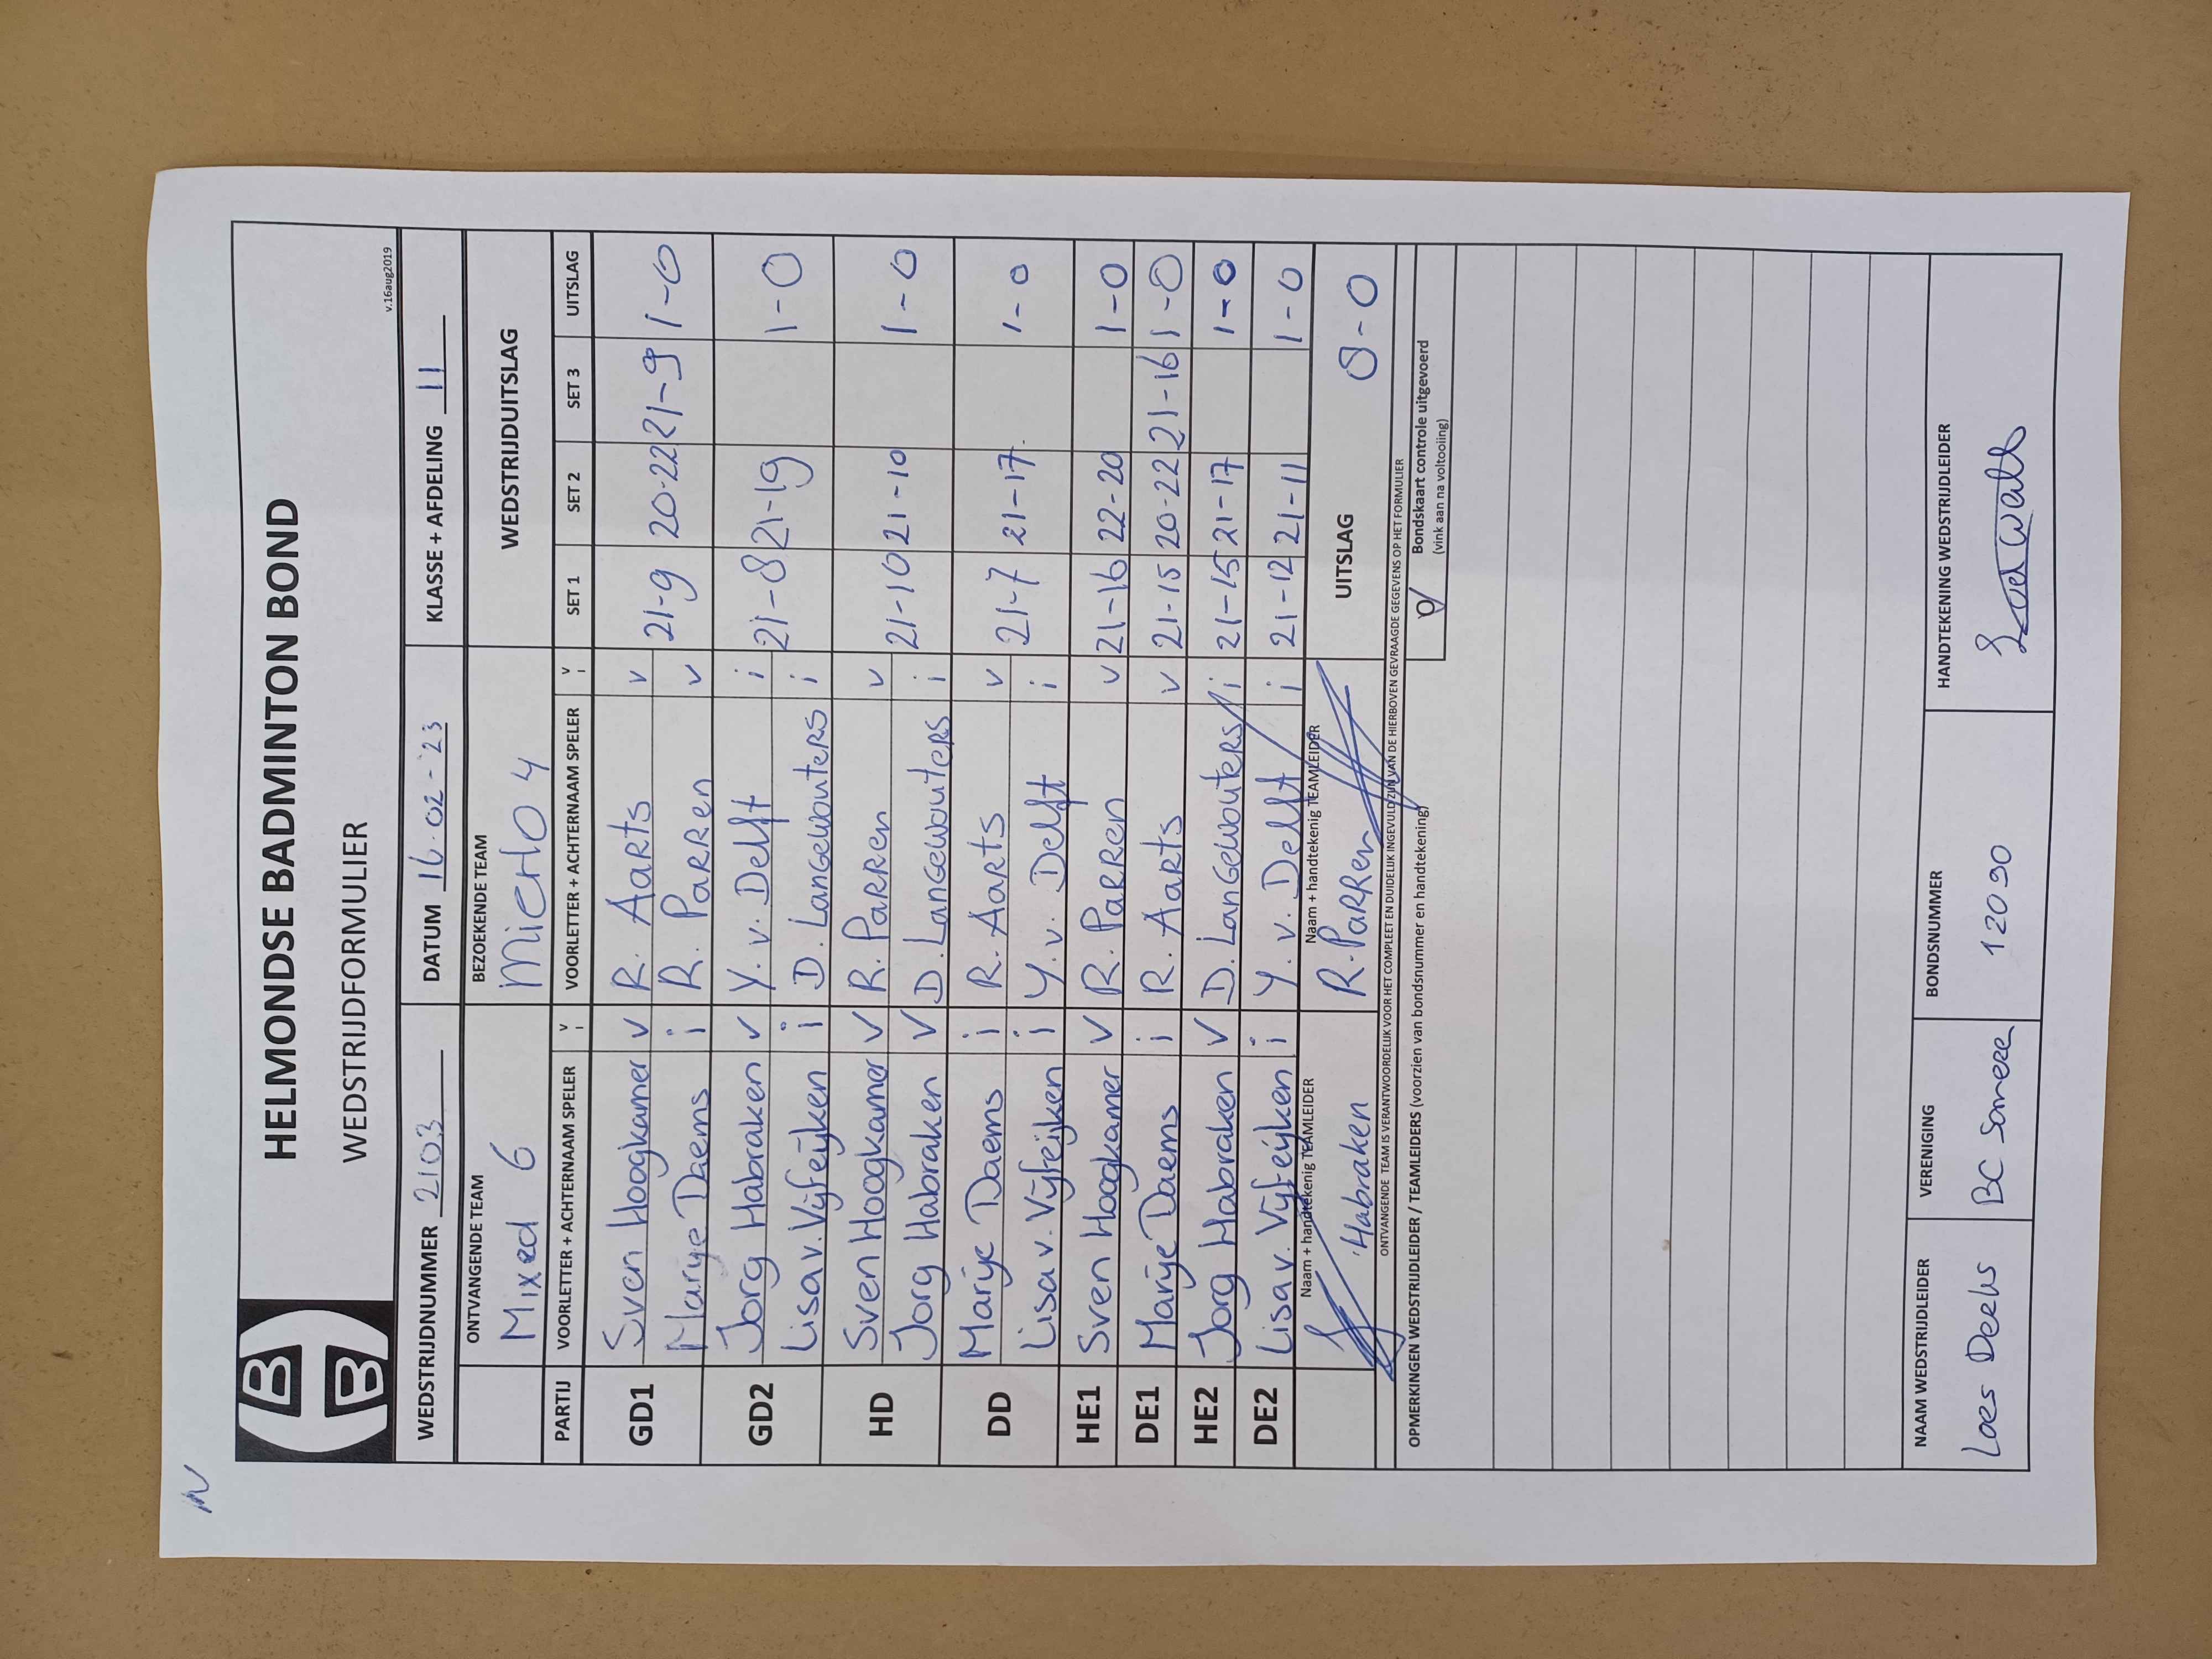 N
HELMONDSE BADMINTON BOND
WEDSTRIJDFORMULIER
v.16aug2019
WEDSTRIJDNUMMER 2103 DATUM 16-02-'23 KLASSE + AFDELING 11
ONTVANGENDE TEAM BEZOEKENDE TEAM WEDSTRIJDUITSLAG
Mixed 6 MierLO 4
PARTIJ VOORLETTER + ACHTERNAAM SPELER V i VOORLETTER + ACHTERNAAM SPELER V i SET 1 SET 2 SET 3 UITSLAG
GD1 Sven Hoogkamer v R. AARts v 21-9 20-22 21-9 1-0
Marije Daems i R. PaRRen v
GD2 Jorg Habraken v Y. v. Delft i 21-8 21-19 1-0
Lisa v. Vijfeijken i D. LanGewouteRs i
HD Sven Hoogkamer v R. PaRRen v 21-10 21-10 1-0
Jorg Habraken v D. LanGewouteRs i
DD Marije Daems i R. AaRts v 21-7 21-17 1-0
Lisa v. Vijfeijken i Y. v. Delft i
HE1 Sven Hoogkamer v R. PaRRen v 21-16 22-20 1-0
DE1 Marije Daems i R. AaRts v 21-15 20-22 21-16 1-0
HE2 Jorg Habraken v D. LanGewouteRs i 21-15 21-17 1-0
DE2 Lisa v. Vijfeijken i Y. v. Delft i 21-12 21-11 1-0
Naam + handtekenig TEAMLEIDER Naam + handtekenig TEAMLEIDER UITSLAG 8-0
Habraken R. PaRRen
ONTVANGENDE TEAM IS VERANTWOORDELIJK VOOR HET COMPLEET EN DUIDELIJK INGEVULD ZIJN VAN DE HIERBOVEN GEVRAAGDE GEGEVENS OP HET FORMULIER
OPMERKINGEN WEDSTRIJDLEIDER / TEAMLEIDERS (voorzien van bondsnummer en handtekening)
Bondskaart controle uitgevoerd
(vink aan na voltooiing)
NAAM WEDSTRIJDLEIDER VERENIGING BONDSNUMMER HANDTEKENING WEDSTRIJDLEIDER
Loes BC Someren 12090